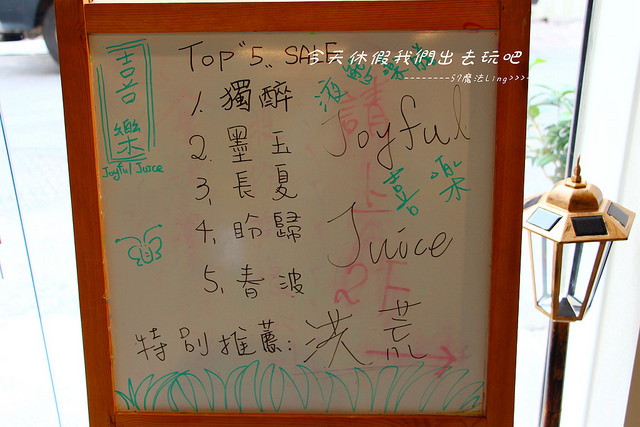 今天休假我們出去玩吧
---------57魔法Ling>>>>
喜樂
Joyful Juice
Top "5" SALE
1. 獨醉
2. 墨玉
3. 長夏
4. 盼歸
5. 春波
特別推薦: 洪荒
Joyful
喜樂
Juice